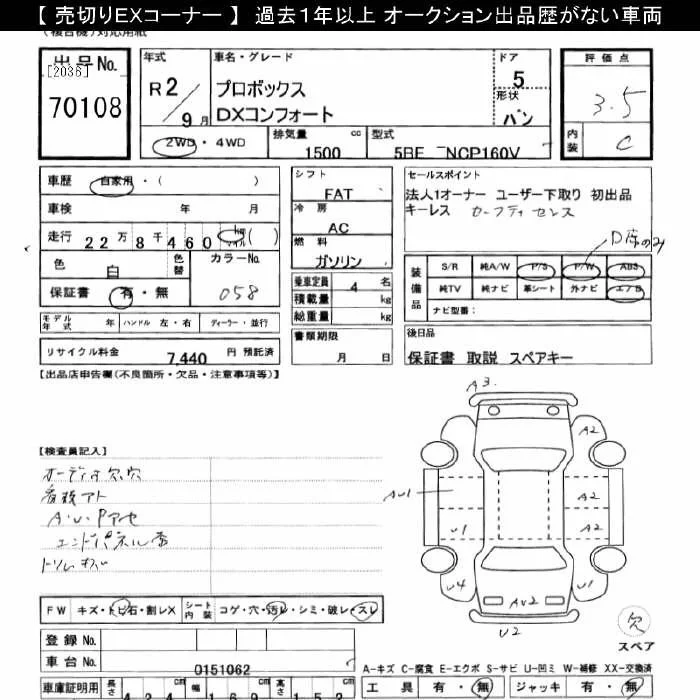 【 売切りEXコーナー 】 過去1年以上 オークション出品歴がない車両
(複合機)対応用紙
出品No.
[2036]
70108
年式 R2/9月
車名・グレード
プロボックス
DXコンフォート
ドア 5
形状 バン
2WD ・ 4WD
排気量 1500 cc
型式 5BE NCP160V
評価点 3.5
内装 C
車歴 自家用・( )
車検 年 月
走行 22万8千460 km マイル ( )
色 白 色替
カラーNo. 058
保証書 有・無
モデル年式 年 ハンドル 左・右 ディーラー・並行
リサイクル料金 7,440 円 預託済
シフト FAT
冷房 AC
燃料 ガソリン
乗車定員 4 名
積載量 kg
総重量 kg
書類期限 月 日
セールスポイント
法人1オーナー ユーザー下取り 初出品
キーレス セーフティセンス
D席のみ
装備品 S/R 純A/W P/S P/W ABS
純TV 純ナビ 革シート 外ナビ エアB
ナビ型番:
後日品
保証書 取説 スペアキー
【出品店申告欄(不良箇所・欠品・注意事項等)】
【検査員記入】
オーディオ欠、穴
看板アト
A・U・Pアセ
エンドパネル歪
トリムキズ
A3
A2
AU1
A2
U1
A2
U4
U1
AU2
U2
欠
スペア
FW キズ・トビ石・割レX シート内装 コゲ・穴・汚レ・シミ・破レ・スレ
登録No.
車台No. 0151062
A-キズ C-腐食 E-エクボ S-サビ U-凹ミ W-補修 XX-交換済
車庫証明用 長さ 424 cm 幅 169 cm 高さ 15 cm
工具 有・無 ジャッキ 有・無